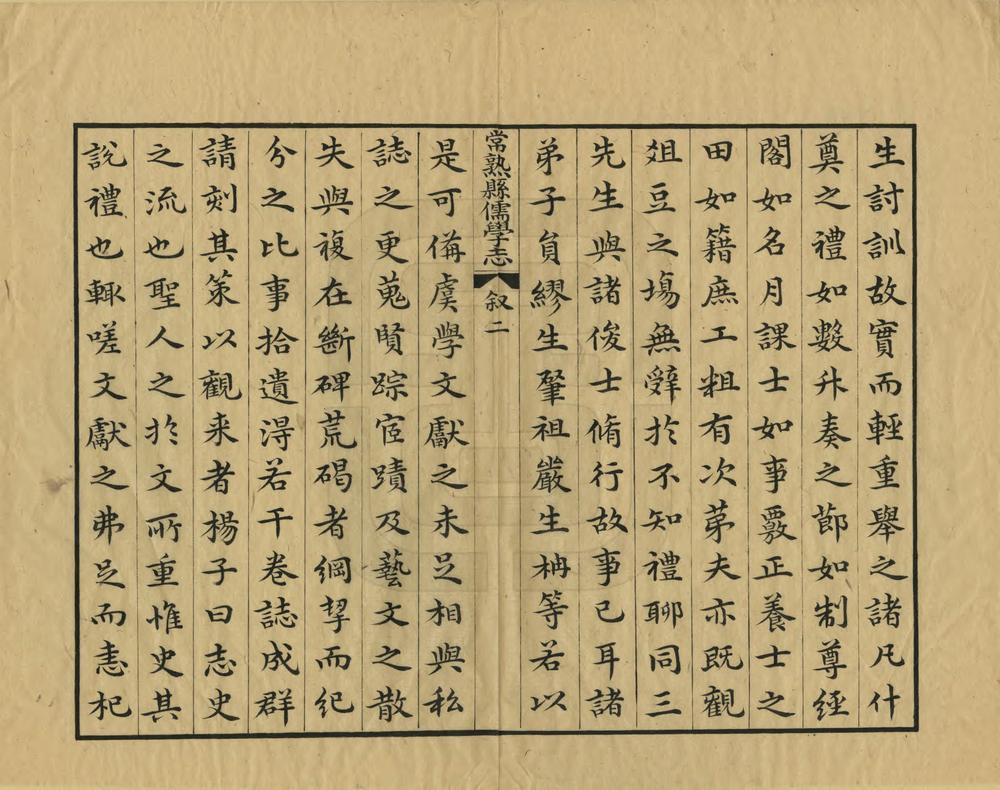 生討訓故實而輕重舉之諸凡什
奠之禮如數升奏之節如制尊經
閣如名月課士如事覈正養士之
田如籍庶工粗有次苐夫亦既觀
爼豆之塲無辭於不知禮聊同三
先生與諸俊士脩行故事已耳諸
弟子員繆生肇祖嚴生柟等若以
常熟縣儒學志
叙二
是可備虞學文獻之未足相與私
誌之更蒐賢踪宦蹟及藝文之散
失與複在斷碑荒碣者綱挈而紀
分之比事拾遺淂若干卷誌成群
請刻其策以觀来者楊子曰志史
之流也聖人之於文所重惟史其
說禮也輙嗟文獻之弗足而恚杞